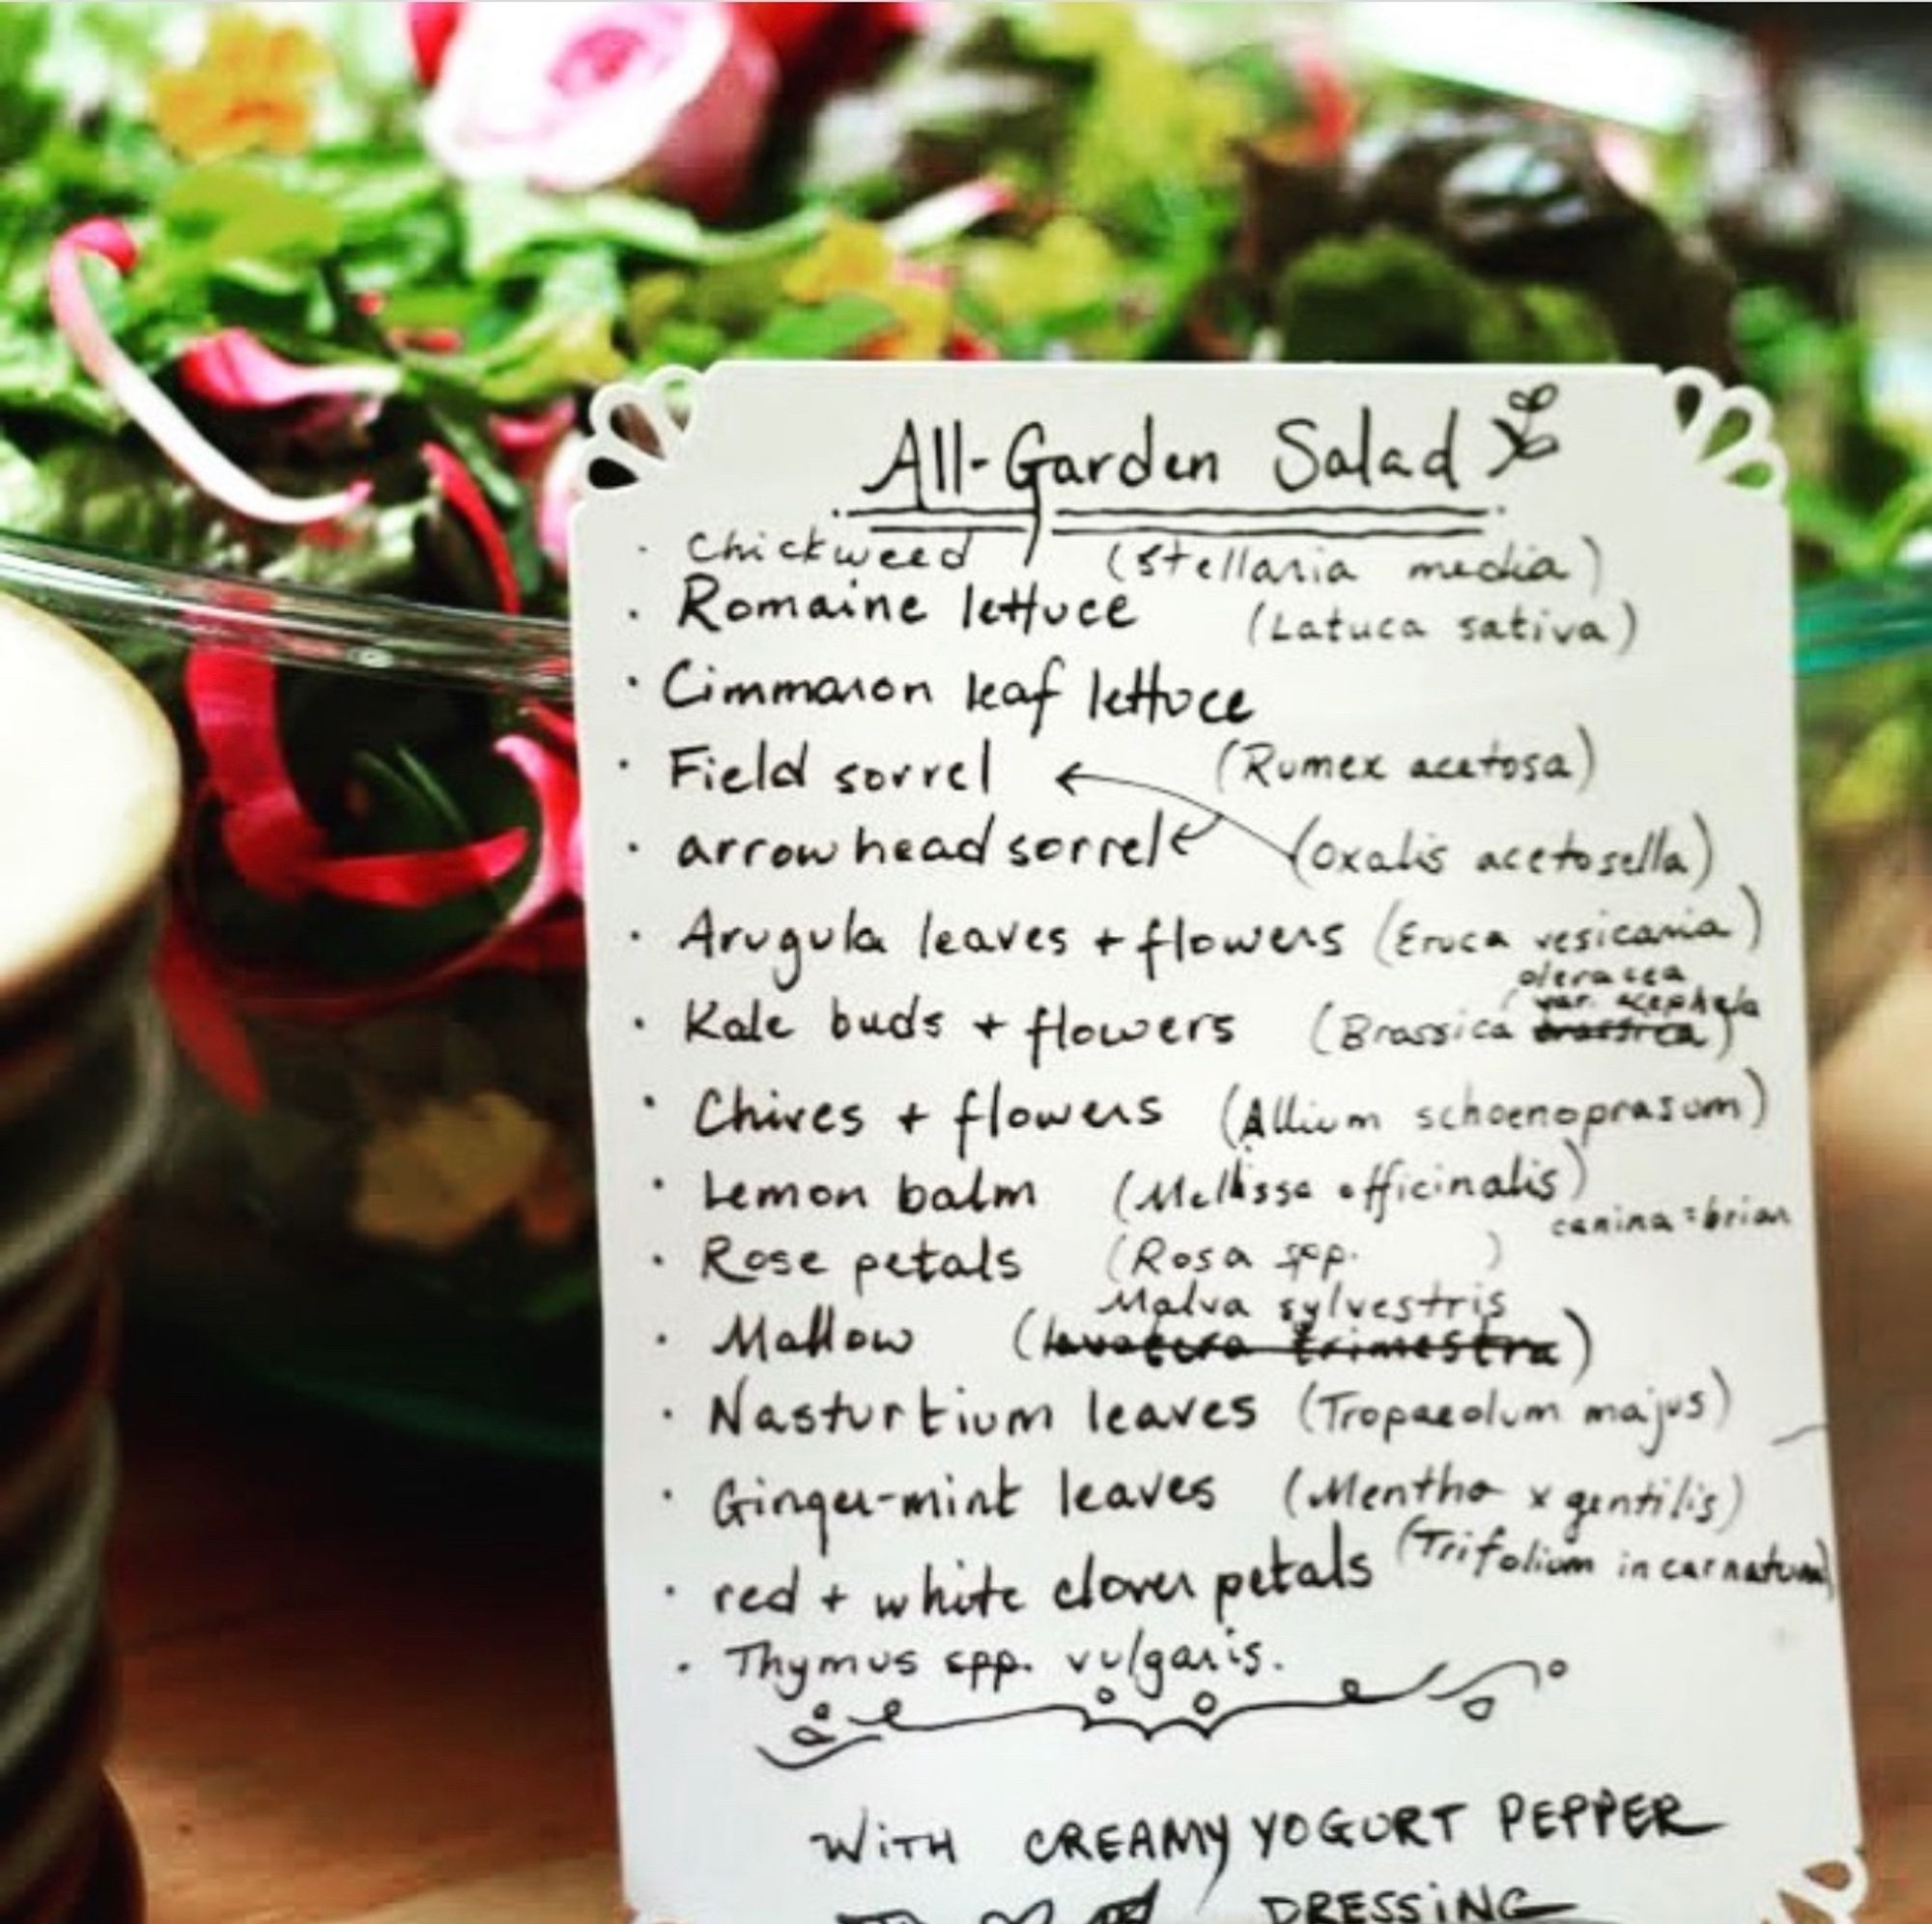 All-Garden Salad
· Chickweed (Stellaria media)
· Romaine lettuce (Latuca sativa)
· Cimmaron leaf lettuce
· Field sorrel ← (Rumex acetosa)
· arrowhead sorrel ← (Oxalis acetosella)
· Arugula leaves + flowers (Eruca vesicaria)
oleracea
var. acephala
· Kale buds + flowers (Brassica brassica)
· Chives + flowers (Allium schoenoprasum)
· Lemon balm (Mellissa officinalis)
canina = briar
· Rose petals (Rosa spp. )
Malva sylvestris
· Mallow (lavatera trimestra)
· Nasturtium leaves (Tropaeolum majus)
· Ginger-mint leaves (Mentha x gentilis)
· red + white clover petals (Trifolium incarnatum)
· Thymus spp. vulgaris.
WiTH CREAMY YOGURT PEPPER
DRESSiNG